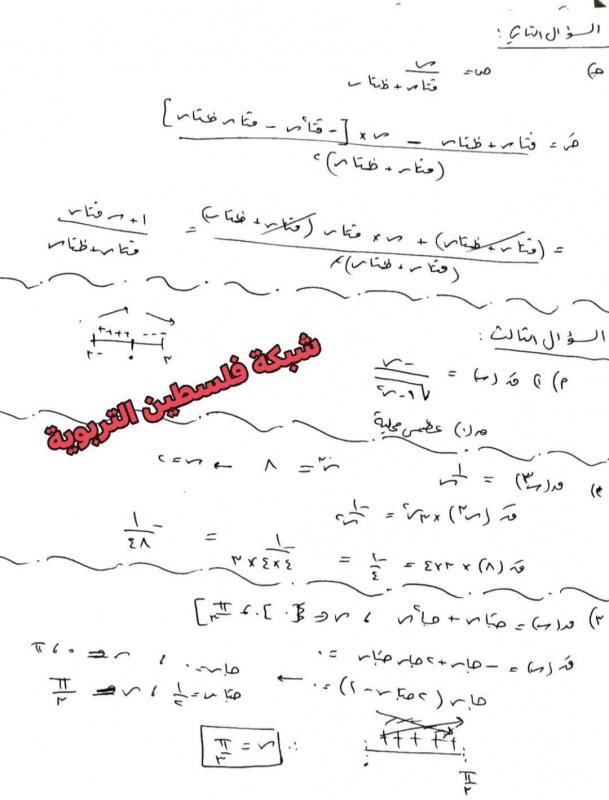 السؤال الثاني :
ب) ص = س / (قتاس + ظتاس)
صَ = (قتاس + ظتاس - س × [- قتا²س - قتاس ظتاس]) / (قتاس + ظتاس)²
= ((قتاس + ظتاس) + س × قتاس (قتاس + ظتاس)) / (قتاس + ظتاس)² = (١ + س قتاس) / (قتاس + ظتاس)
السؤال الثالث :
٣- ٠ ٣
++++ ---
م) ١) قَ(س) = -س / √(٩-س²)
ق(٠) عظمى محلية
٢) ق(س³) = ١/س س³ = ٨ ← س = ٢
قَ(س³) × ٣س² = -١/س²
قَ(٨) × ٣×٤ = -١/٤ = -١/(٤×٤×٣) = -١/٤٨
٣) ق(س) = جتاس + جا²س ، س ∈ [٠ ، π/٢]
قَ(س) = -جاس + ٢جاس جتاس = ٠
جاس (٢جتاس - ١) = ٠ ←
جاس = ٠ ، س = ٠ ، π
جتاس = ١/٢ ، س = π/٣
+++++
٠ π/٢
∴ س = π/٣
شبكة فلسطين التربوية